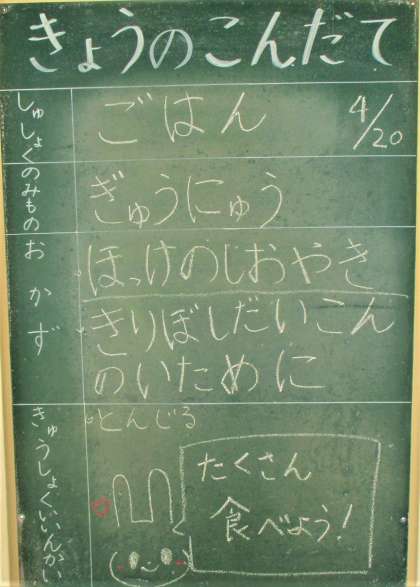 きょうのこんだて
しゅしょく
ごはん
4/20
のみもの
ぎゅうにゅう
おかず
ほっけのしおやき
きりぼしだいこん
のいために
とんじる
きゅうしょくいいんかい
たくさん
食べよう!